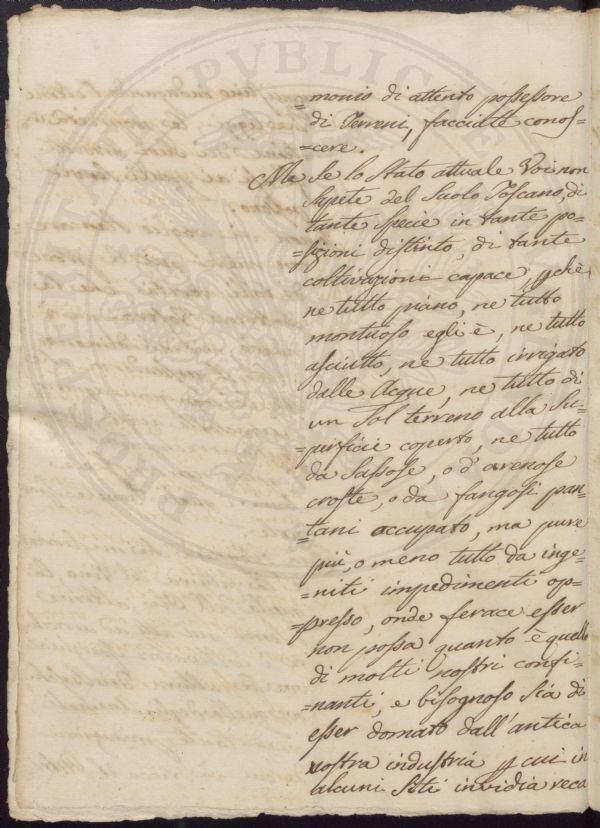 =monio di attento possessore
di Terreni, facciate conos=
=cere.
Ma se lo Stato attuale Voi non
sapete del Suolo Toscano, di
tante specie in tante po=
=sizioni distinto, di tante
coltivazioni capace, pchè
ne tutto piano, ne tutto
montuoso egli è, ne tutto
asciutto, ne tutto irrigato
dalle Acque, ne tutto di
un Sol terreno alla Su=
=perficie coperto, ne tutto
da Sassose, o d'arenose
croste, o da fangosi pan=
=tani occupato, ma pure
più, o meno tutto da inge=
=niti impedimenti op=
=presso, onde ferace esser
non possa quanto è quello
di molti nostri confi=
=nanti, e bisognoso sia di
esser domato dall'antica
nostra industria p cui in
alcuni Siti invidia reca
PVBLICE